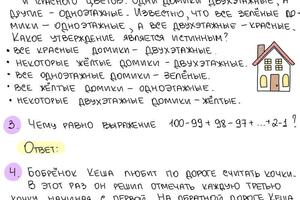 И КРАСНОГО ЦВЕТОВ. ОДНИ ДОМИКИ ДВУХЭТАЖНЫЕ, А
ДРУГИЕ - ОДНОЭТАЖНЫЕ. ИЗВЕСТНО, ЧТО ВСЕ ЗЕЛЁНЫЕ ДО-
МИКИ - ОДНОЭТАЖНЫЕ, А ВСЕ ДВУХЭТАЖНЫЕ - КРАСНЫЕ.
КАКОЕ УТВЕРЖДЕНИЕ ЯВЛЯЕТСЯ ИСТИННЫМ?
• ВСЕ КРАСНЫЕ ДОМИКИ - ДВУХЭТАЖНЫЕ.
• НЕКОТОРЫЕ ЖЁЛТЫЕ ДОМИКИ - ДВУХЭТАЖНЫЕ.
• ВСЕ ОДНОЭТАЖНЫЕ ДОМИКИ - ЗЕЛЁНЫЕ.
• ВСЕ ЖЁЛТЫЕ ДОМИКИ - ОДНОЭТАЖНЫЕ.
• НЕКОТОРЫЕ ДВУХЭТАЖНЫЕ ДОМИКИ - ЖЁЛТЫЕ.
3. ЧЕМУ РАВНО ВЫРАЖЕНИЕ 100-99+98-97+...+2-1 ?
ОТВЕТ:
4. БОБРЁНОК КЕША ЛЮБИТ ПО ДОРОГЕ СЧИТАТЬ КОЧКИ.
В ЭТОТ РАЗ ОН РЕШИЛ ОТМЕЧАТЬ КАЖДУЮ ТРЕТЬЮ
КОЧКУ, НАЧИНАЯ С ПЕРВОЙ. НА ОБРАТНОЙ ДОРОГЕ КЕША